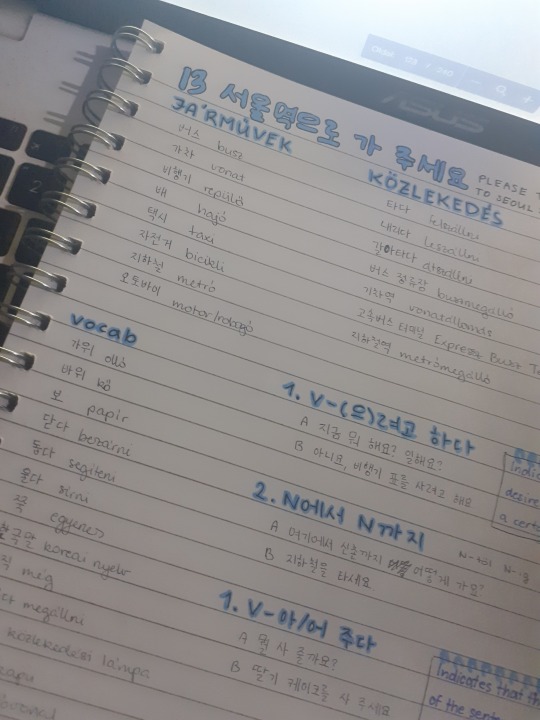 ASUS
13 서울역으로 가 주세요
PLEASE
TO SEOUL
JÁRMŰVEK
버스 busz
기차 vonat
비행기 repülő
배 hajó
택시 taxi
자전거 bicikli
지하철 metró
오토바이 motor/robogó
KÖZLEKEDÉS
타다 felszállni
내리다 leszállni
갈아타다 átszállni
버스 정류장 buszmegálló
기차역 vonatállomás
고속버스 터미널 Express Bus
지하철역 metrómegálló
vocab
가위 olló
바위 kő
보 papír
닫다 bezárni
돕다 segíteni
울다 sírni
쭉 egyenes
한국말 koreai nyelv
직 még
megállni
közlekedési lámpa
1. V-(으)려고 하다
A 지금 뭐 해요? 일해요?
B 아니요, 비행기 표를 사려고 해요
desire
a certa
2. N에서 N까지
N-től N-ig
A 여기에서 신촌까지 어떻게 가요?
B 지하철을 타세요
1. V-아/어 주다
A 뭘 사 줄까요?
B 딸기 케이크를 사 주세요
Indicates that th
of the sent